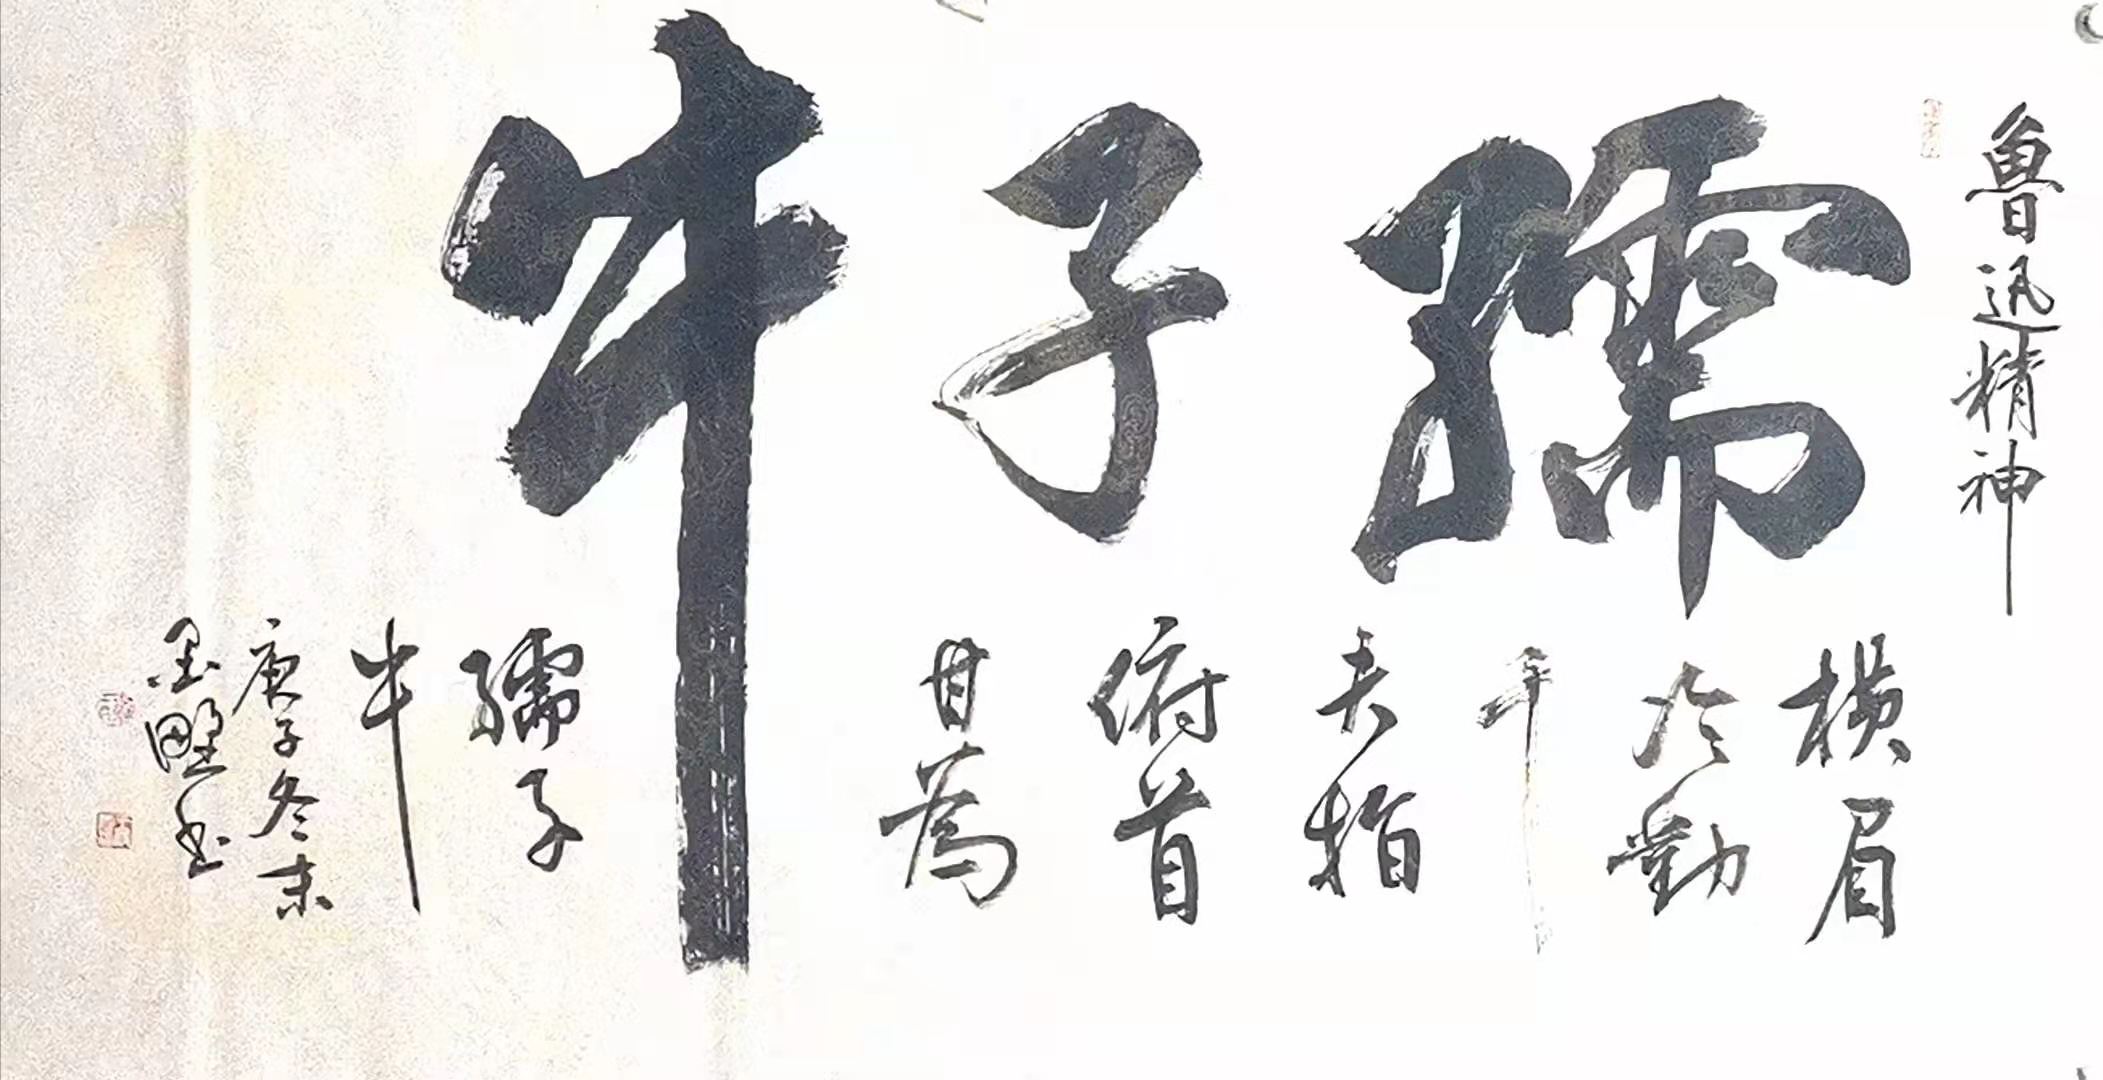 魯迅精神
孺子牛
横眉
冷對
千
夫指
俯首
甘為
孺子
牛
庚子冬末
墨野书